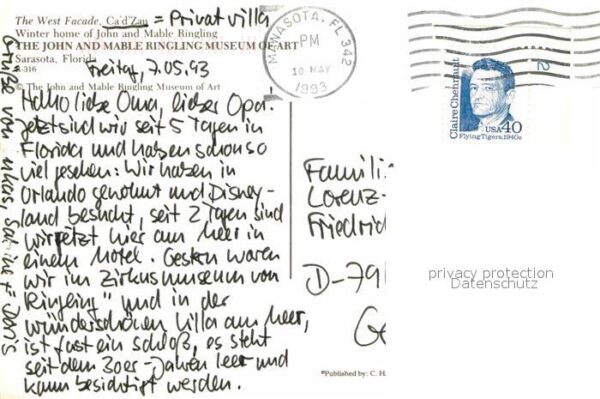 The West Facade, Ca'd'Zan = Privatvilla
Winter home of John and Mable Ringling
THE JOHN AND MABLE RINGLING MUSEUM OF ART
Sarasota, Florida
R-316
Freitag, 7.05.93
© The John and Mable Ringling Museum of Art
Hallo liebe Oma, lieber Opa!
Jetzt sind wir seit 5 Tagen in
Florida und haben schon so
viel gesehen: Wir haben in
Orlando gewohnt und Disney-
land besucht, seit 2 Tagen sind
wir jetzt hier am Meer in
einem Motel. Gestern waren
wir im Zirkusmuseum von
"Ringling" und in der
wunderschönen Villa am Meer,
ist fast ein Schloß, es steht
seit dem 30er-Jahren leer und
kann besichtigt werden.
Grüße von
+ Doris
MANASOTA, FL 342
PM
10 MAY
1993
Claire Chennault
USA 40
Flying Tigers, 1940s
2
Famili
Lorenz-
Friedrich
D-791
Ge
privacy protection
Datenschutz
©Published by: C. H